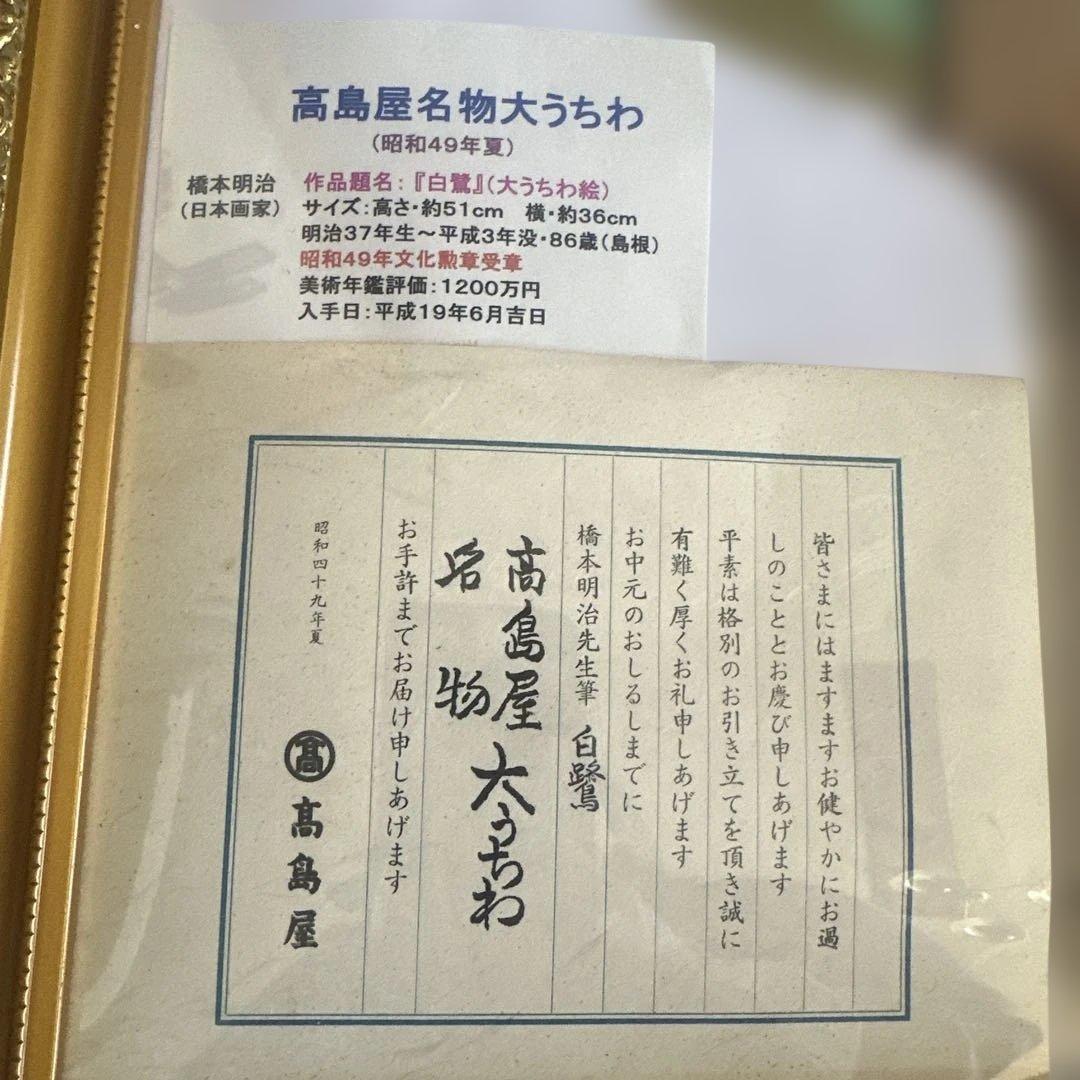 高島屋名物大うちわ
(昭和49年夏)
橋本明治
(日本画家)
作品題名:『白鷺』(大うちわ絵)
サイズ:高さ・約51cm 横・約36cm
明治37年生～平成3年没・86歳(島根)
昭和49年文化勲章受章
美術年鑑評価:1200万円
入手日:平成19年6月吉日
皆さまにはますますお健やかにお過
しのこととお慶び申しあげます
平素は格別のお引き立てを頂き誠に
有難く厚くお礼申しあげます
お中元のおしるしまでに
橋本明治先生筆 白鷺
高島屋
名物
大うちわ
お手許までお届け申しあげます
昭和四十九年夏
髙 髙島屋